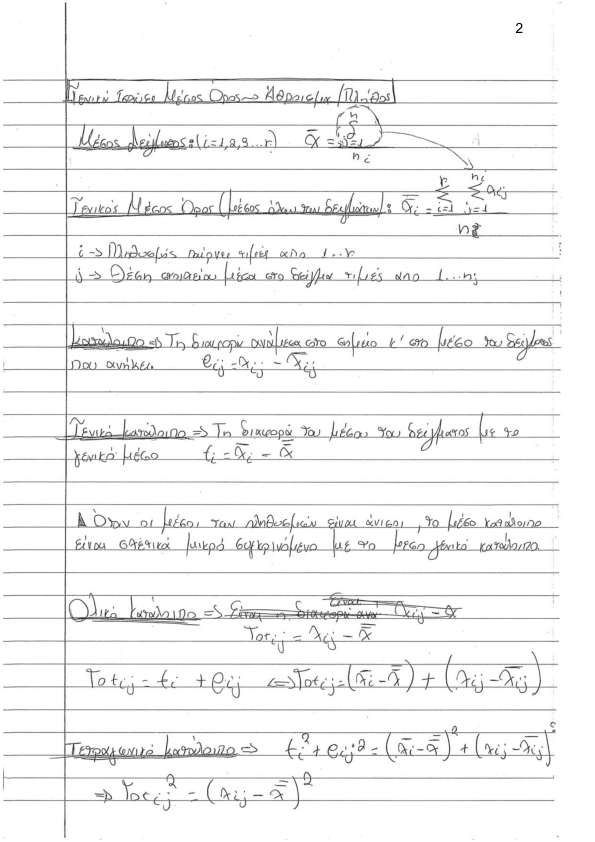 2
Γενικό Μέσος Όρος → Άθροισμα / Πλήθος
Μέσος Δείγματος: (i=1,2,3...r) x̄ = Σ j=1 n / n i
Γενικός Μέσος Όρος (μέσος όλων των δειγμάτων): x̿ i = Σ i=1 r Σ j=1 n i x ij / n
i → Πληθυσμός παίρνει τιμές από 1...r
j → Θέση στοιχείου μέσα στο δείγμα τιμές από 1...n i
Κατάλοιπο => Τη διαφορά ανάμεσα στο σημείο κ' στο μέσο του δείγματος
που ανήκει. e ij = x ij - x̄ ij
Γενικό κατάλοιπο => Τη διαφορά του μέσου του δείγματος με το
γενικό μέσο t i = x̄ i - x̿
Όταν οι μέσοι των πληθυσμών είναι άνισοι, το μέσο κατάλοιπο
είναι σχετικά μικρό συγκρινόμενο με το μέσο γενικό κατάλοιπο.
Ολικό κατάλοιπο =>
Tot ij = x ij - x̿
Tot ij = t i + e ij <=> Tot ij = (x̄ i - x̿) + (x ij - x̄ ij)
Τετραγωνικό κατάλοιπο => t i ² + e ij ² = (x̄ i - x̿)² + (x ij - x̄ ij)²
=> Tot ij ² = (x ij - x̿)²